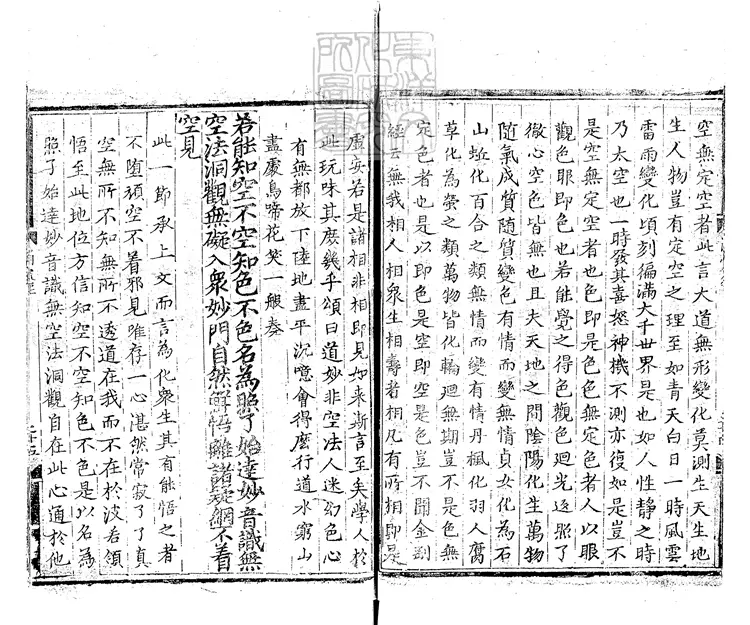 空無定空者此言大道無形變化莫測生天生地
生人物豈有定空之理至如青天白日一時風雲
雷雨變化頃刻徧滿大千世界是也如人性静之時
乃太空也一時發其喜怒神機不測亦復如是豈不
是空無定空者也色即是色色無定色者人以眼
觀色耶即色也若能覺之得色觀色廻光返照了
徹心空色皆無也且夫天地之間陰陽化生萬物
隨氣成質隨質變色有情而變無情貞女化為石
山蚯化百合之類無情而變有情丹楓化羽人腐
草化為螢之類萬物皆化輪廻無期豈不是色無
定色者也是以即色是空即空是色豈不聞金剛
經云無我相人相衆生相壽者相凡有所相即是
虛妄若是諸相非相即見如来斯言至矣學人於
此玩味其庶幾乎頌曰道妙非空法人迷幻色心
有無都放下陸地盡平沉噫會得麽行道水窮山
盡處鳥啼花笑一般春
若能知空不空知色不色名為照了始達妙音識無
空法洞觀無礙入衆妙門自然解悟離諸疑網不着
空見
此一節承上文而言為化衆生其有能悟之者
不堕頑空不着邪見唯存一心湛然常寂了了真
空無所不知無所不透道在我而不在於波若領
悟至此地位方信知空不空知色不色是以名為
照了始達妙音識無空法洞觀自在此心通於他